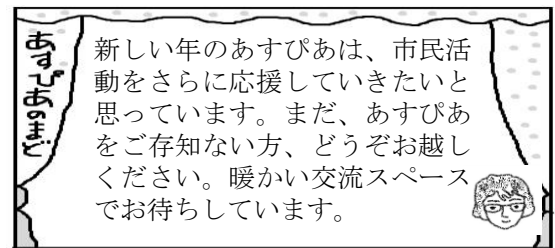 あすぴあのまど
新しい年のあすぴあは、市民活
動をさらに応援していきたいと
思っています。まだ、あすぴあ
をご存知ない方、どうぞお越し
ください。暖かい交流スペース
でお待ちしています。